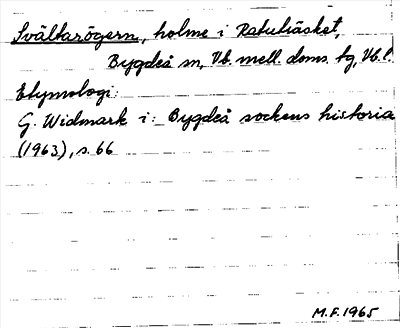 Svältarögern, holme i Ratuträsket,
Bygdeå sn, Vb. mell. doms. tg, Vb. l.
Etymologi:
G. Widmark i: Bygdeå sockens historia
(1963), s. 66
M.F. 1965